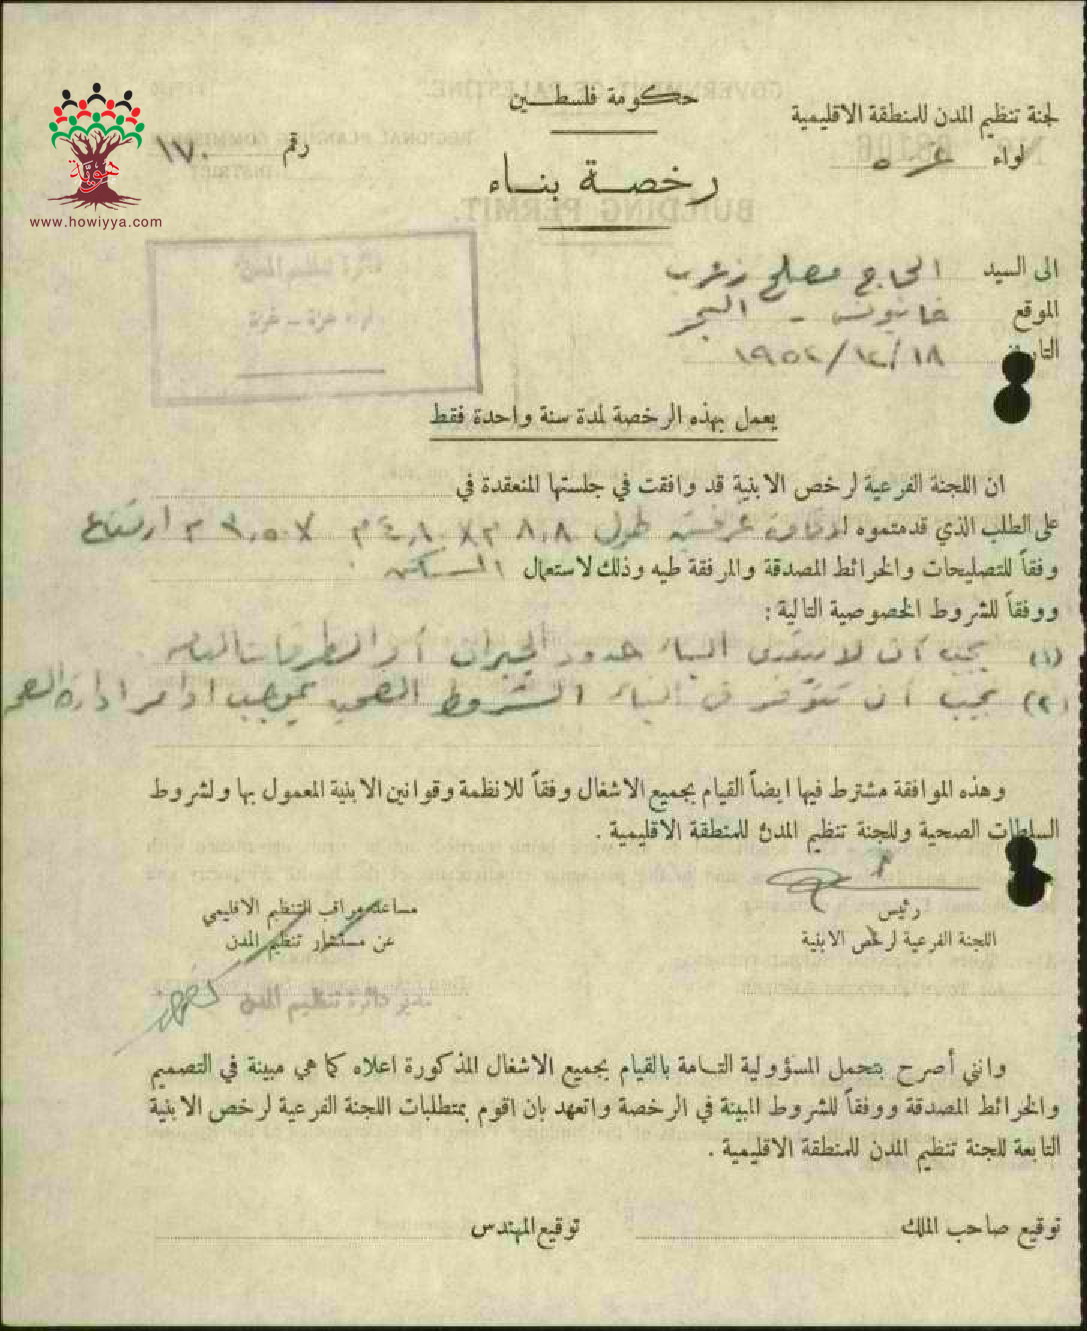 حكومة فلسطين
لجنة تنظيم المدن للمنطقة الاقليمية
لواء غزة
رقم ١٧٠
رخصة بناء
هوية
www.howiyya.com
دائرة تنظيم المدن
لواء غزة - غزة
الى السيد الحاج مصلح زعرب
الموقع خانيونس - البحر
التاريخ ١٩٥٢/١٢/١٨
يعمل بهذه الرخصة لمدة سنة واحدة فقط
ان اللجنة الفرعية لرخص الابنية قد وافقت في جلستها المنعقدة في
على الطلب الذي قدمتموه لاقامة غرفتين طول ٨،٨ م × ٤،٨ م × ٣،٥٠ م ارتفاع
وفقاً للتصليحات والخرائط المصدقة والمرفقة طيه وذلك لاستعمال السكن
ووفقاً للشروط الخصوصية التالية :
(١) يجب أن لا يتعدى البناء حدود الجيران أو الطرقات العامه .
(٢) يجب أن تتوفر في البناء الشروط الصحيه بموجب اوامر ادارة الصحه
وهذه الموافقة مشترط فيها ايضاً القيام بجميع الاشغال وفقاً للانظمة وقوانين الابنية المعمول بها ولشروط
السلطات الصحية وللجنة تنظيم المدن للمنطقة الاقليمية .
رئيس
اللجنة الفرعية لرخص الابنية
مساعد مراقب التنظيم الاقليمي
عن مستشار تنظيم المدن
مدير دائرة تنظيم المدن
وانني أصرح بتحمل المسؤولية التامة بالقيام بجميع الاشغال المذكورة اعلاه كما هي مبينة في التصميم
والخرائط المصدقة ووفقاً للشروط المبينة في الرخصة واتعهد بان اقوم بمتطلبات اللجنة الفرعية لرخص الابنية
التابعة للجنة تنظيم المدن للمنطقة الاقليمية .
توقيع صاحب الملك
توقيع المهندس